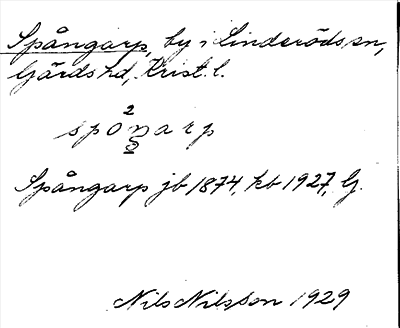 Spångarp, by i Linderöds sn,
Gärds hd, Krist. l.
2
spoŋarp
2
Spångarp jb 1874, kb 1927, G.
Nils Nilsson 1929